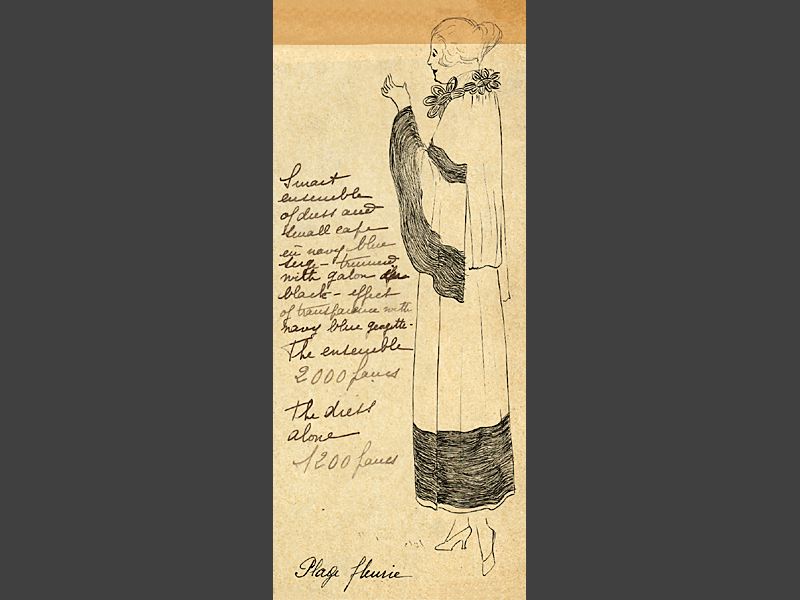 Smart
ensemble
of dress and
small cape
en navy blue
serge - trimmed
with galon
black - effect
of transparence with
navy blue georgette.
The ensemble
2000 francs
The dress
alone
1200 francs
Plage fleurie